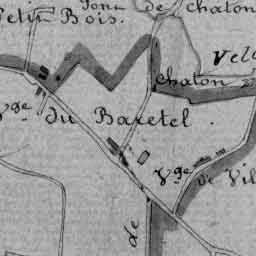 Pont de chaton
Petit Bois.
Vel
chaton
Vge du Baretel.
Vge de Vil
de